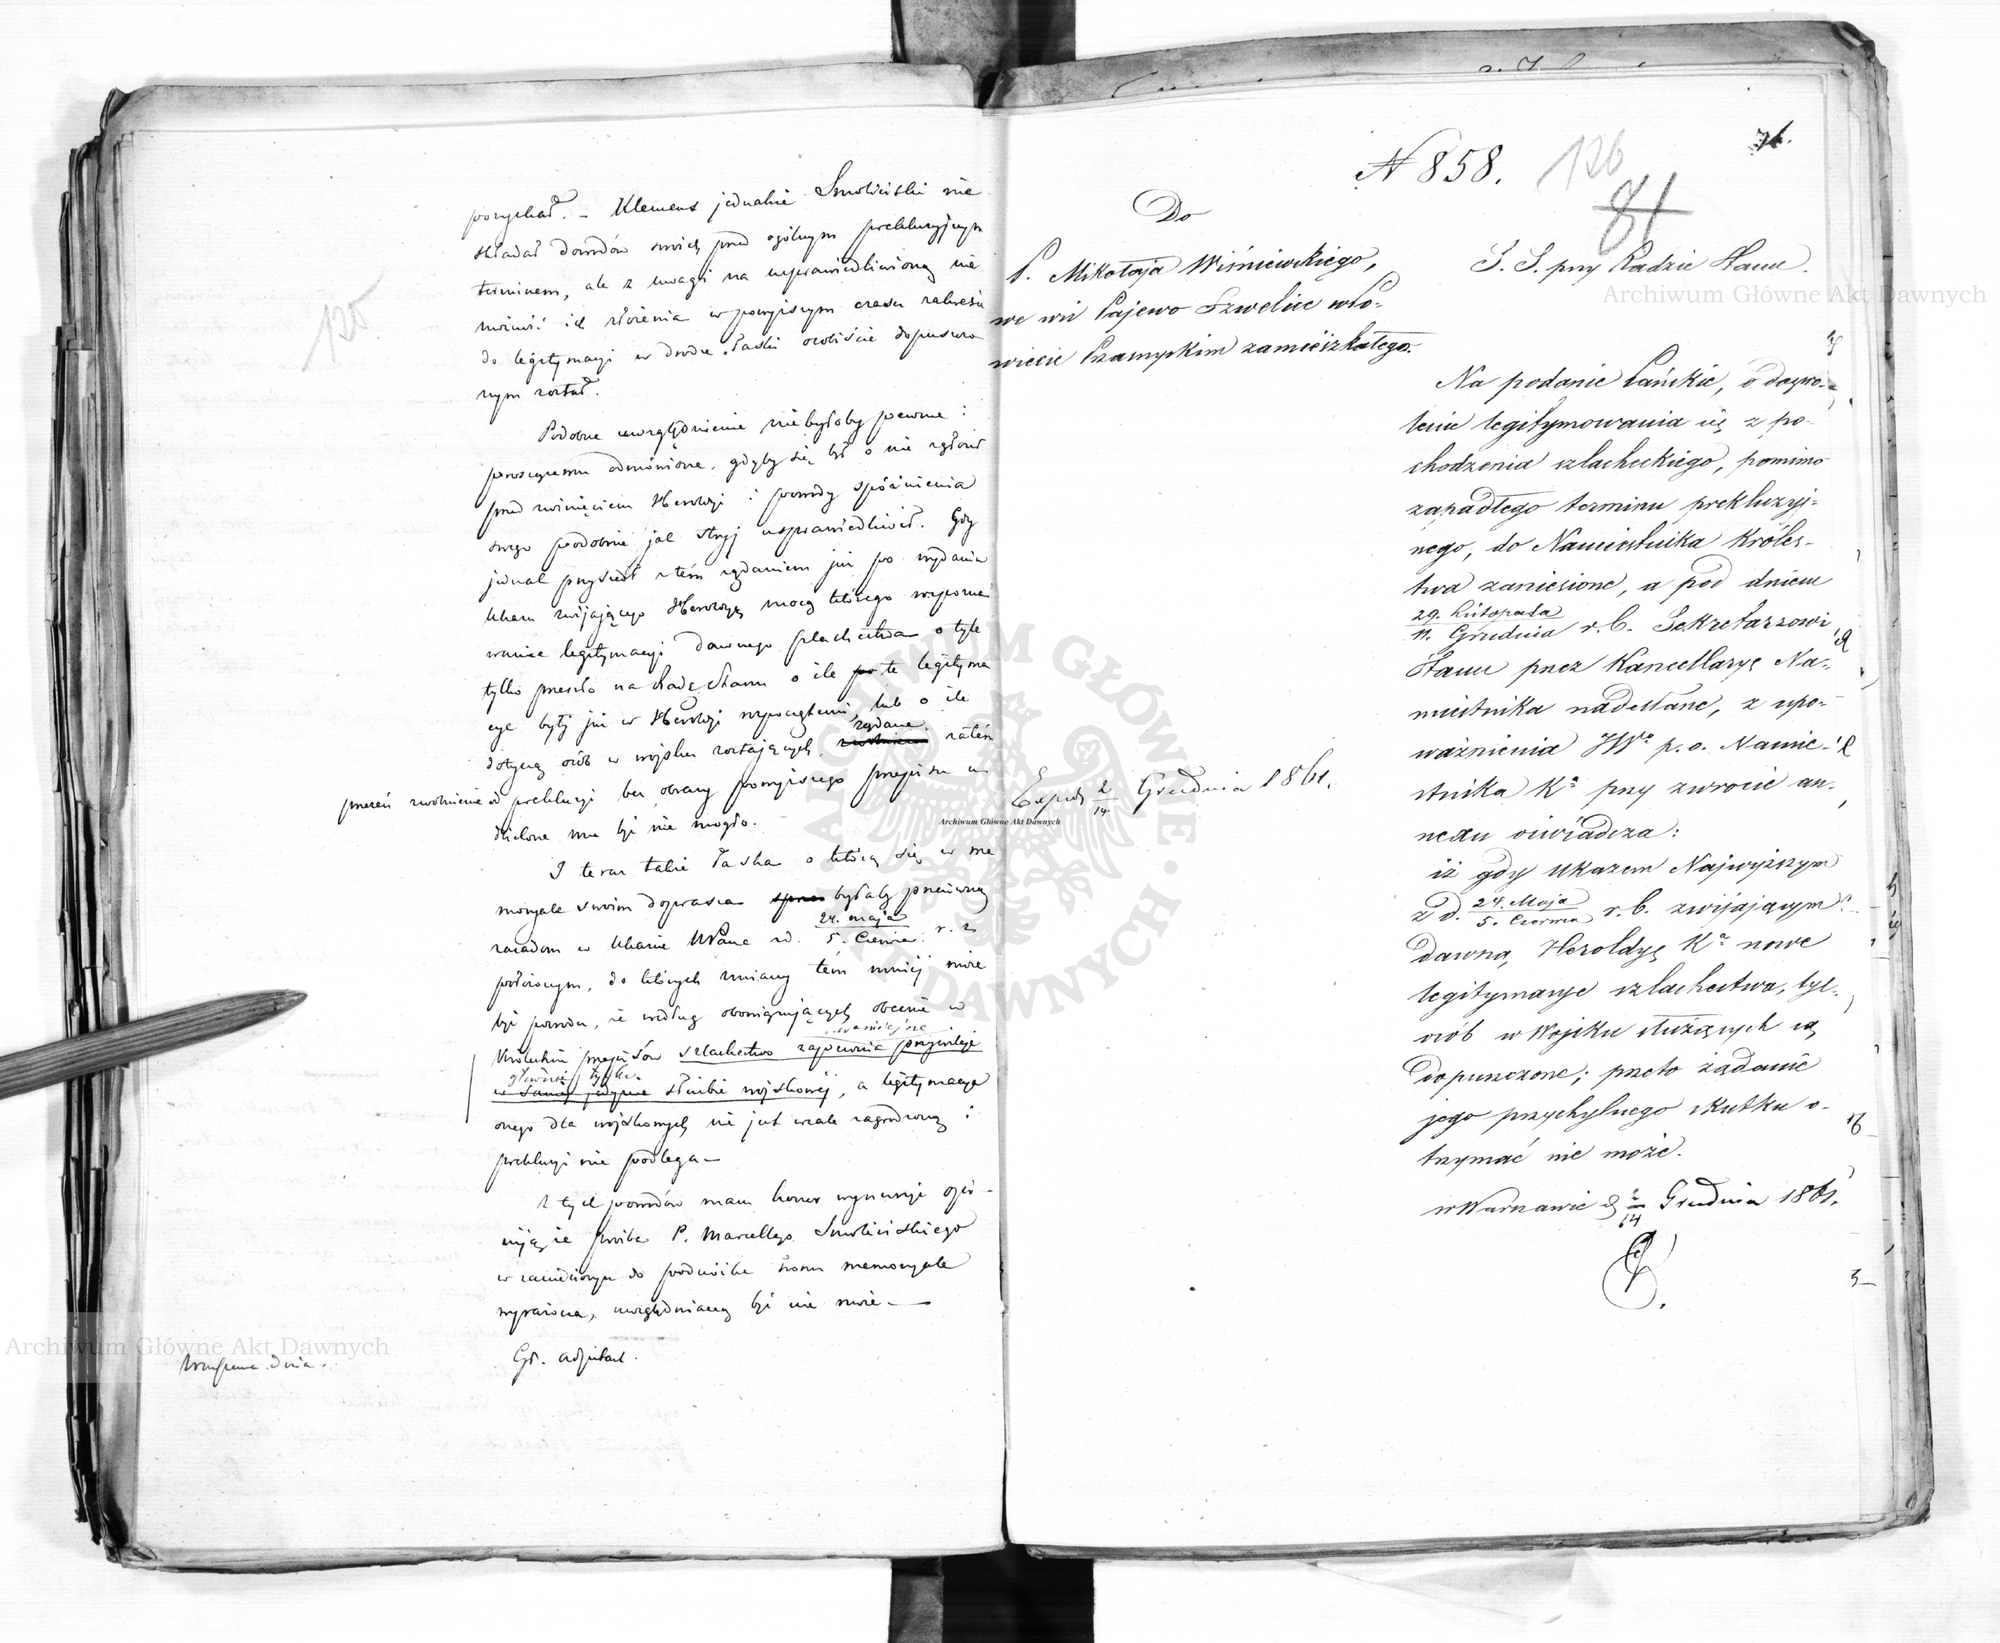 120
porychał. – Klemens jednakże Smoleiński nie
składał dowodów swoich przed ogólnym prekluzyjnym
terminem, ale z uwagi na usprawiedliwioną nie
możność ich złożenia w powyższym czasu zakresie
do legitymacyi w drodze łaski osobiście dopuszczo
nym został.
Podobne uwzględnienie niebyłoby pewnie
proszącemu odmówione, gdyby się był o nie zgłosił
przed zwinięciem Heroldyi i powody spóźnienia
swego podobnie jak stryj usprawiedliwił. Gdy
jednak przyszedł z tém żądaniem już po wydaniu
Ukazu zwijającego Heroldyę, mocą którego rozpozna
wanie legitymacyi dawnego szlachectwa o tyle
tylko przeszło na Radę Stanu o ile te legityma
cye były już w Heroldyi rozpoczętemi, lub o ile
dotyczą osób w wojsku zostających, żądane zatém
przezeń zwolnienie od prekluzyi bez obrazy powyższego przepisu u
dzielone mu być nie mogło.
I teraz także łaska o którą się w me
moryale swoim doprasza byłaby przeciwną
zasadom w Ukazie WPana z d. 24. maja / 5. Czerwca r. z
położonym, do których zmiany tém mniéj może
być powodu, że według obowiązujących obecnie w
Królestwie przepisów szlachectwo zapewnia przywileje
głównie tylko
w samej jedynie służbie wojskowéj, a legitymacya
onego dla wojskowych nie jest wcale zagrodzoną i
prekluzyi nie podlega –
Z tych powodów mam honor wynurzyć opi-
niją, że prośba P. Marcellego Smoleińskiego
w zaniesionym do podnóża tronu memoryale
wyrażona, uwzględnioną być nie może. –
Gł. adjutant.
Warszawa dnia
N 858.
126
81
76.
Do
P. Mikołaja Wiśniewskiego,
we wsi Pajewo Szwelice w Po-
wiecie Przasnyskim zamieszkałego.
S. S. przy Radzie Stanu.
Na podanie Pańskie, o dozwo-
lenie legitymowania się z po-
chodzenia szlacheckiego, pomimo
zapadłego terminu prekluzyj-
nego, do Namiestnika Króles-
twa zaniesione, a pod dniem
29. Listopada / 11. Grudnia r. b. Sekretarzowi
Stanu przez Kancellaryę Na-
miestnika nadesłane, z upo-
ważnienia JWo p. o. Namie-
stnika Ka przy zwrocie an-
nexu oświadcza:
iż gdy Ukazem Najwyższym
z d. 24. Maja / 5. Czerwca r. b. zwijającym
dawną Heroldyę Ka nowe
legitymacye szlachectwa, tyl-
osób w Wojsku służących są
dopuszczone; przeto żądanie
jego przychylnego skutku o-
trzymać nie może.
w Warszawie d 2/14 Grudnia 1861.
Exped. 2/14 Grudnia 1861.
Archiwum Główne Akt Dawnych
Archiwum Główne Akt Dawnych
Archiwum Główne Akt Dawnych
ARCHIWUM GŁÓWNE AKT DAWNYCH